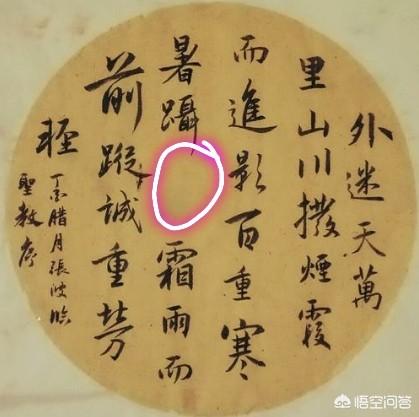 外迷天萬
里山川撥煙霞
而進影百重寒
暑躡霜雨而
前蹤誠重勞
輕
丁酉腊月張波臨
聖教序
悟空问答